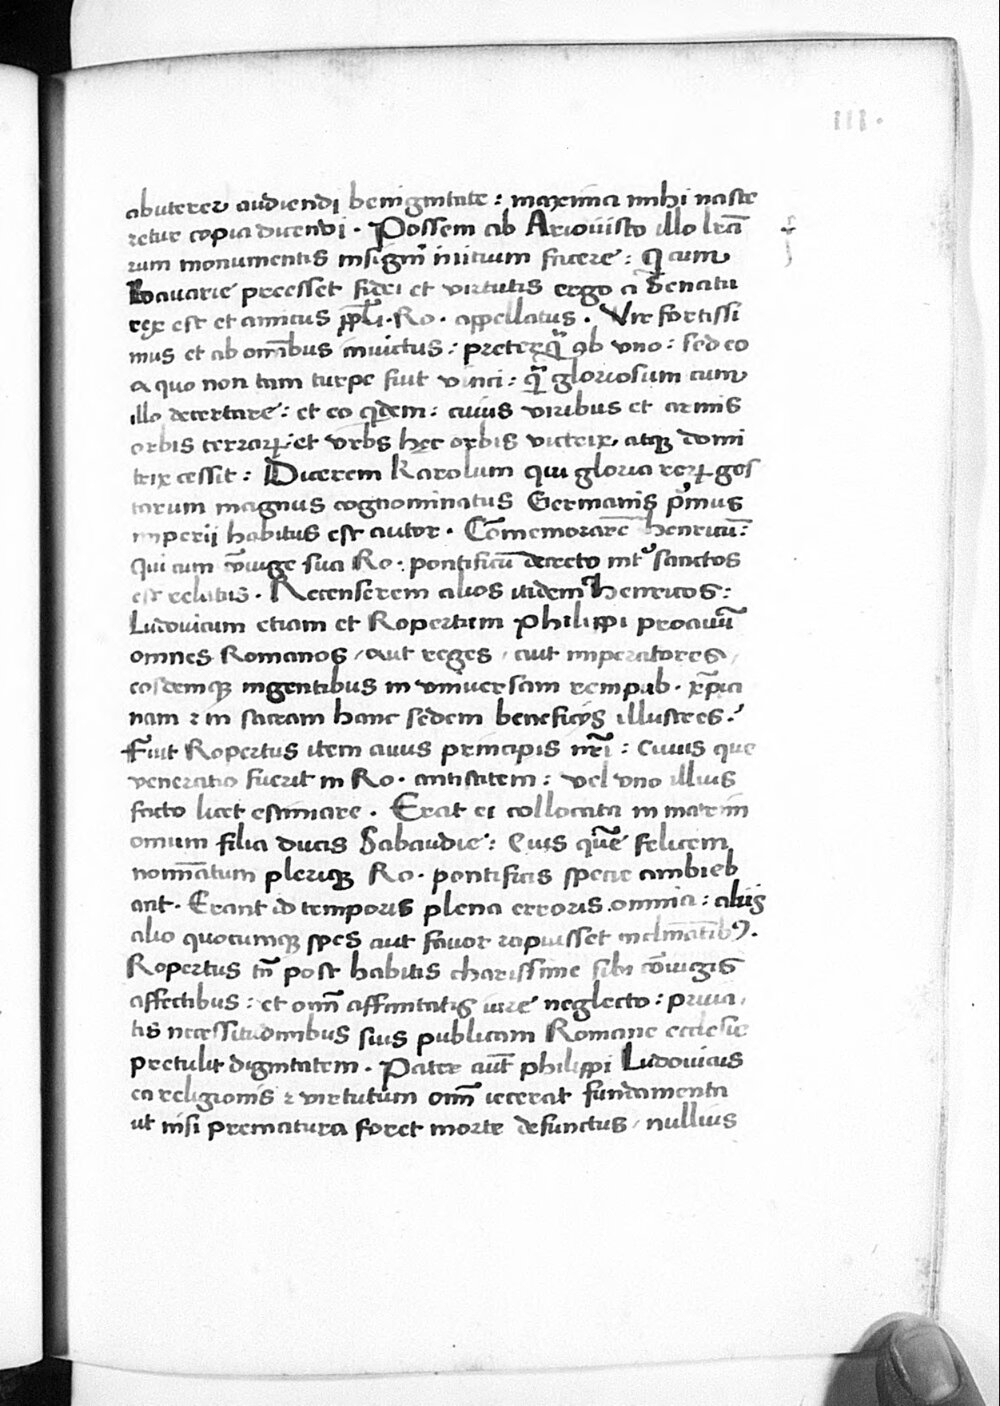 III.
abuterer audiendi benignitate : maxima mihi nasce
retur copia dicendi . Possem ab Ariouisto illo lrā
rum monumentis insigni initium facere : q̄ cum
Boauarie preesset fidei et virtutis ergo a Senatu
rex est et amicus ppl̄i . Ro . appellatus . Vir fortissi
mus et ab om̄ibus inuictus : preterq̄ ab vno : sed eo
a quo non tam turpe fiut vinci : q̄ gloriosum cum
illo decertare : et eo q̄dem : cuius viribus et armis
orbis terrarꝝ : et vrbs hec orbis victrix, atqꝫ domi
trix cessit : Dicerem Karolum qui gloria rerꝝ ges
tarum magnus cognominatus Germanis p̄mus
imperij habitus est autor . Cōmemorarē henricū :
Qui cum cōiuge sua Ro . pontificū decreto int̄ sanctos
est relatus . Recenserem alios itidem henricos :
Ludouicum etiam et Ropertum Philippi proauū
omnes Romanos / aut reges / aut imperatores /
eosdemqꝫ ingentibus in vniuersam rempub . xp̄ia
nam ⁊ in sacram hanc sedem beneficijs illustres .
Fuit Ropertus item auus principis nr̄i : Cuius que
veneratio fuerit in Ro . antistitem : vel vno illius
facto licet estimare . Erat ei collocata in matrim
onium filia ducis Sabaudie : Cuis quē felicem
nomīatum pleriqꝫ Ro . pontificis specie ambieb
ant . Erant id temporis plena erroris omnia : alijs
alio quocumqꝫ spes aut fauor rapuisset inclināntibꝰ .
Ropertus tn̄ post habitis charissime sibi cōiugis
affectibus : et om̄i affinitatis iure neglecto : priua /
tis necessitudinibus suis publicam Romane ecclesie
pretulit dignitatem . Pater aut̄ philippi Ludouicus
ea religionis ⁊ virtutum om̄i iecerat fundamenta
ut nisi prematura foret morte defunctus / nullius